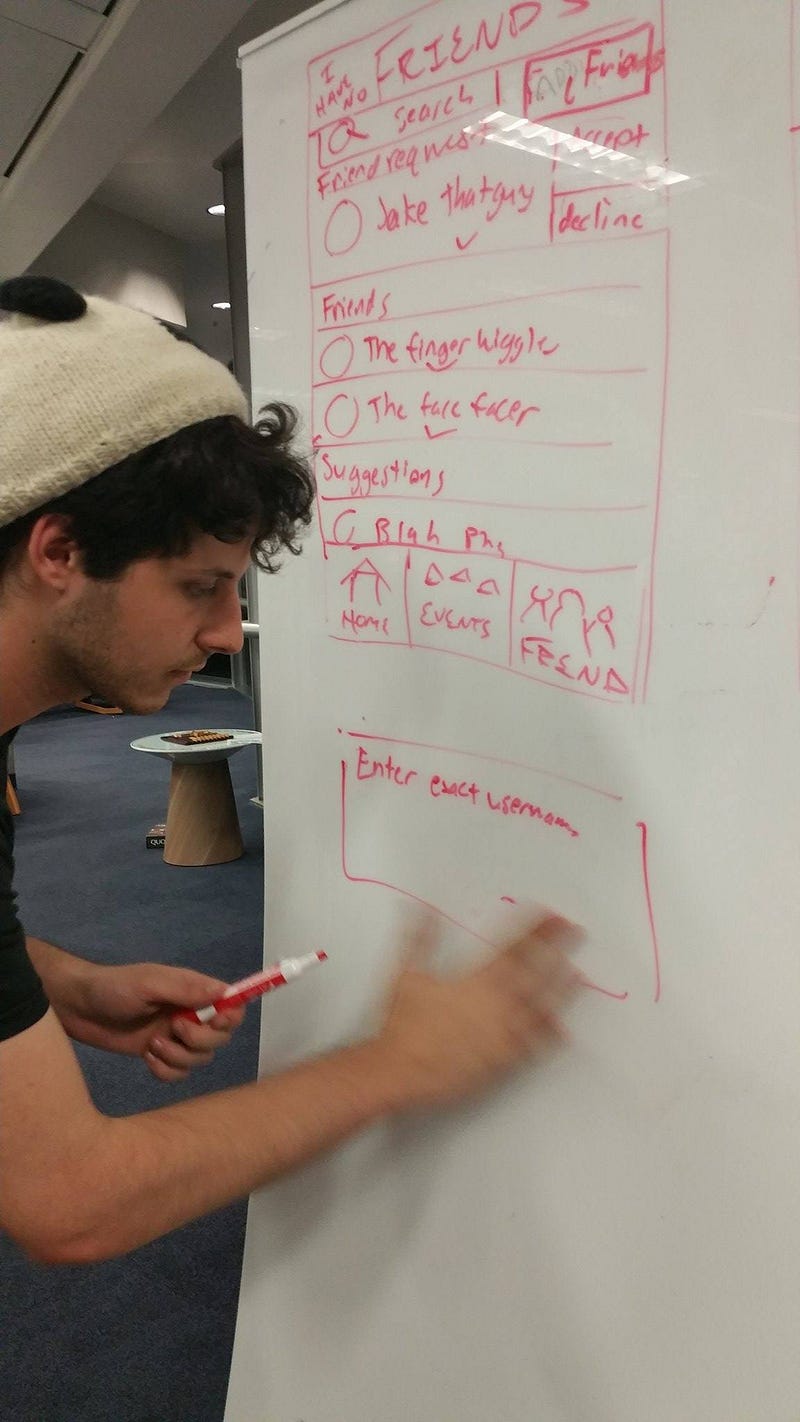 I HAVE NO FRIENDS
Search
Friends
Friend request
Accept
Jake thatguy
decline
Friends
The finger wiggle
The face facer
Suggestions
Blah
HOME
EVENTS
FRIEND
Enter exact username
QUO